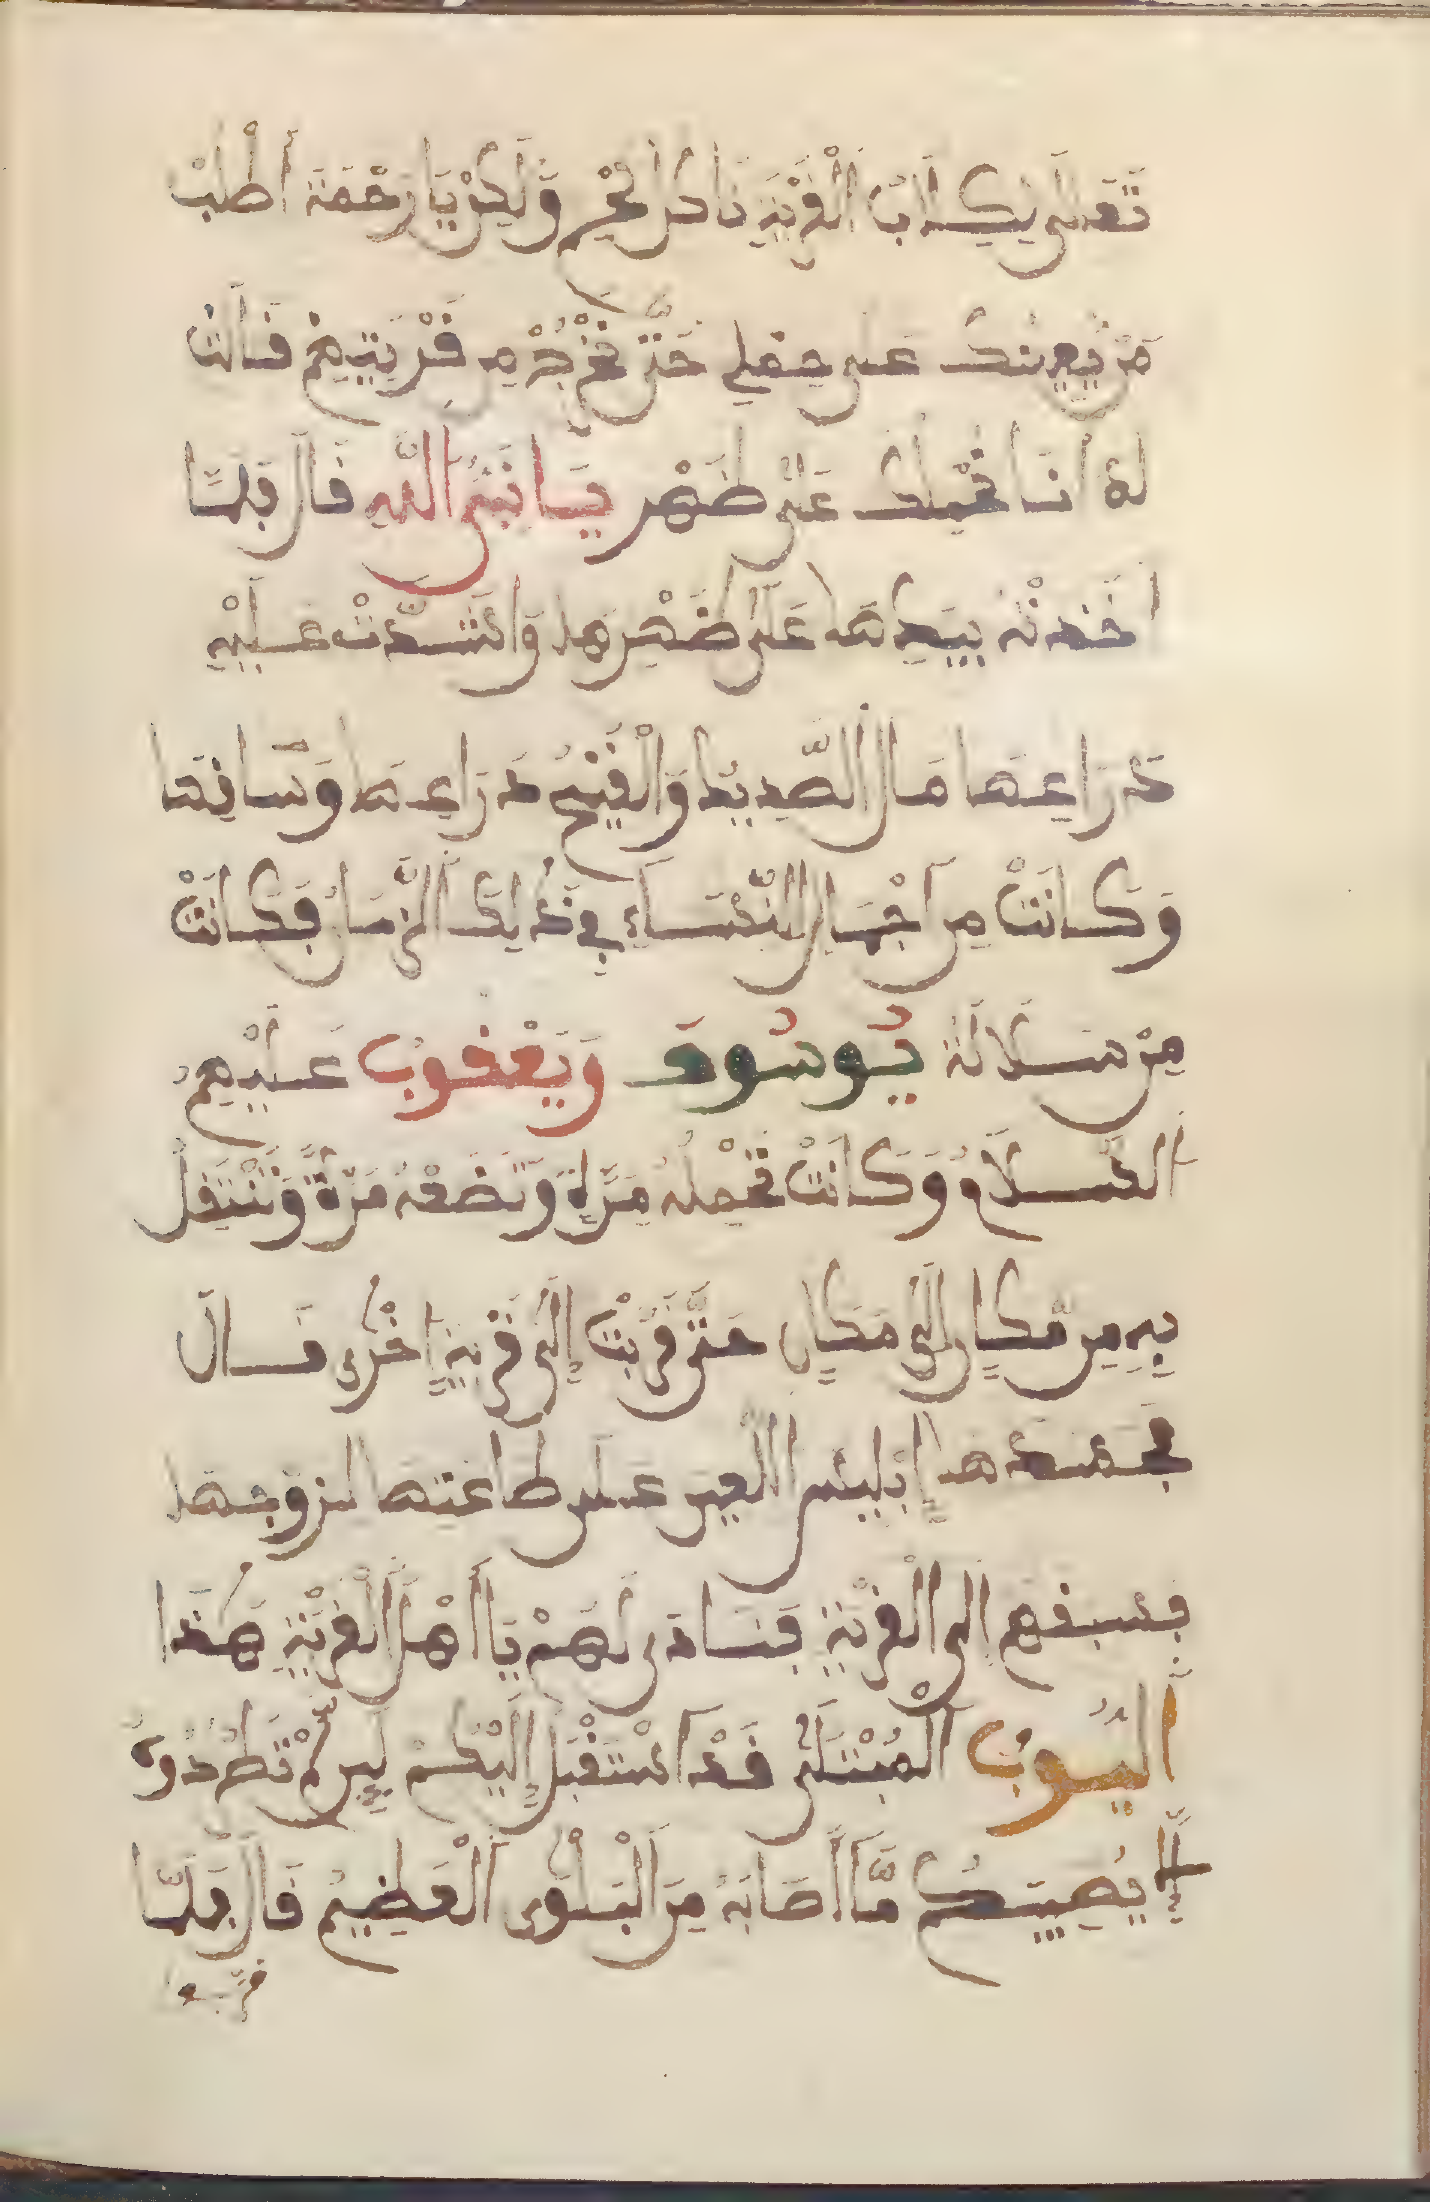 تَعَلَى يكِلَابُ الْقَرْيَةِ تَاكُلُ لَحْمِي وَلَكِنْ يَا رَحْمَةَ أَطْلُبْ
مَنْ يُعِينُكِ عَلَى حِمْلِي حَتَّى نَخْرُجْ مِن قَرْيَتِهِمْ قَالَتْ
لَهُ أَنَا نَحْمِلُكَ عَلَى ظَهْرِي يَا نَبِيَّ اللَّهِ قَالَ فَلَمَّا
أَخَذَتْهُ بِيَدِهَا عَلَى ظَهْرِهَا وَاشْتَدَّتْ عَلَيْهِ
ذِرَاعِهَا سَالَ الصَّدِيدُ وَالْقَيْحُ ذِرَاعِهَا وَسَاقِهَا
وَكَانَتْ مِن أَجْمَلِ النِّسَاءِ فِي ذَلِكَ الزَّمَانِ فَكَانَتْ
مِنْ سَلَالَةِ يُوسُوفَ وَيَعْقُوبَ عَلَيْهِمُ
السَّلَامُ وَكَانَتْ تَحْمِلُهُ مَرَّةً وَتَضَعُهُ مَرَّةً وَتَنْتَقِلُ
بِهِ مِن مَّكَانٍ إِلَى مَكَانٍ حَتَّى قَرُبَتْ إِلَى قَرْيَةٍ أُخْرَى قَالَ
فَحَسَدَهَا إِبْلِيسُ اللَّعِينُ عَلَى طَاعَتِهَا لِزَوْجِهَا
فَسَبَقَهُمْ إِلَى الْقَرْيَةِ فَنَادَى لَهُمْ يَا أَهْلَ الْقَرْيَةِ هَذَا
أَيُّوبُ الْمُبْتَلَى قَدْ اسْتَقْبَلَ إِلَيْكُمْ لَئِن لَّمْ تَطْرُدُوهُ
لَا يُصِيبُكُمْ مَّا أَصَابَهُ مِنَ الْبَلْوَى الْعَظِيمِ قَالَ فَلَمَّا
قرّب